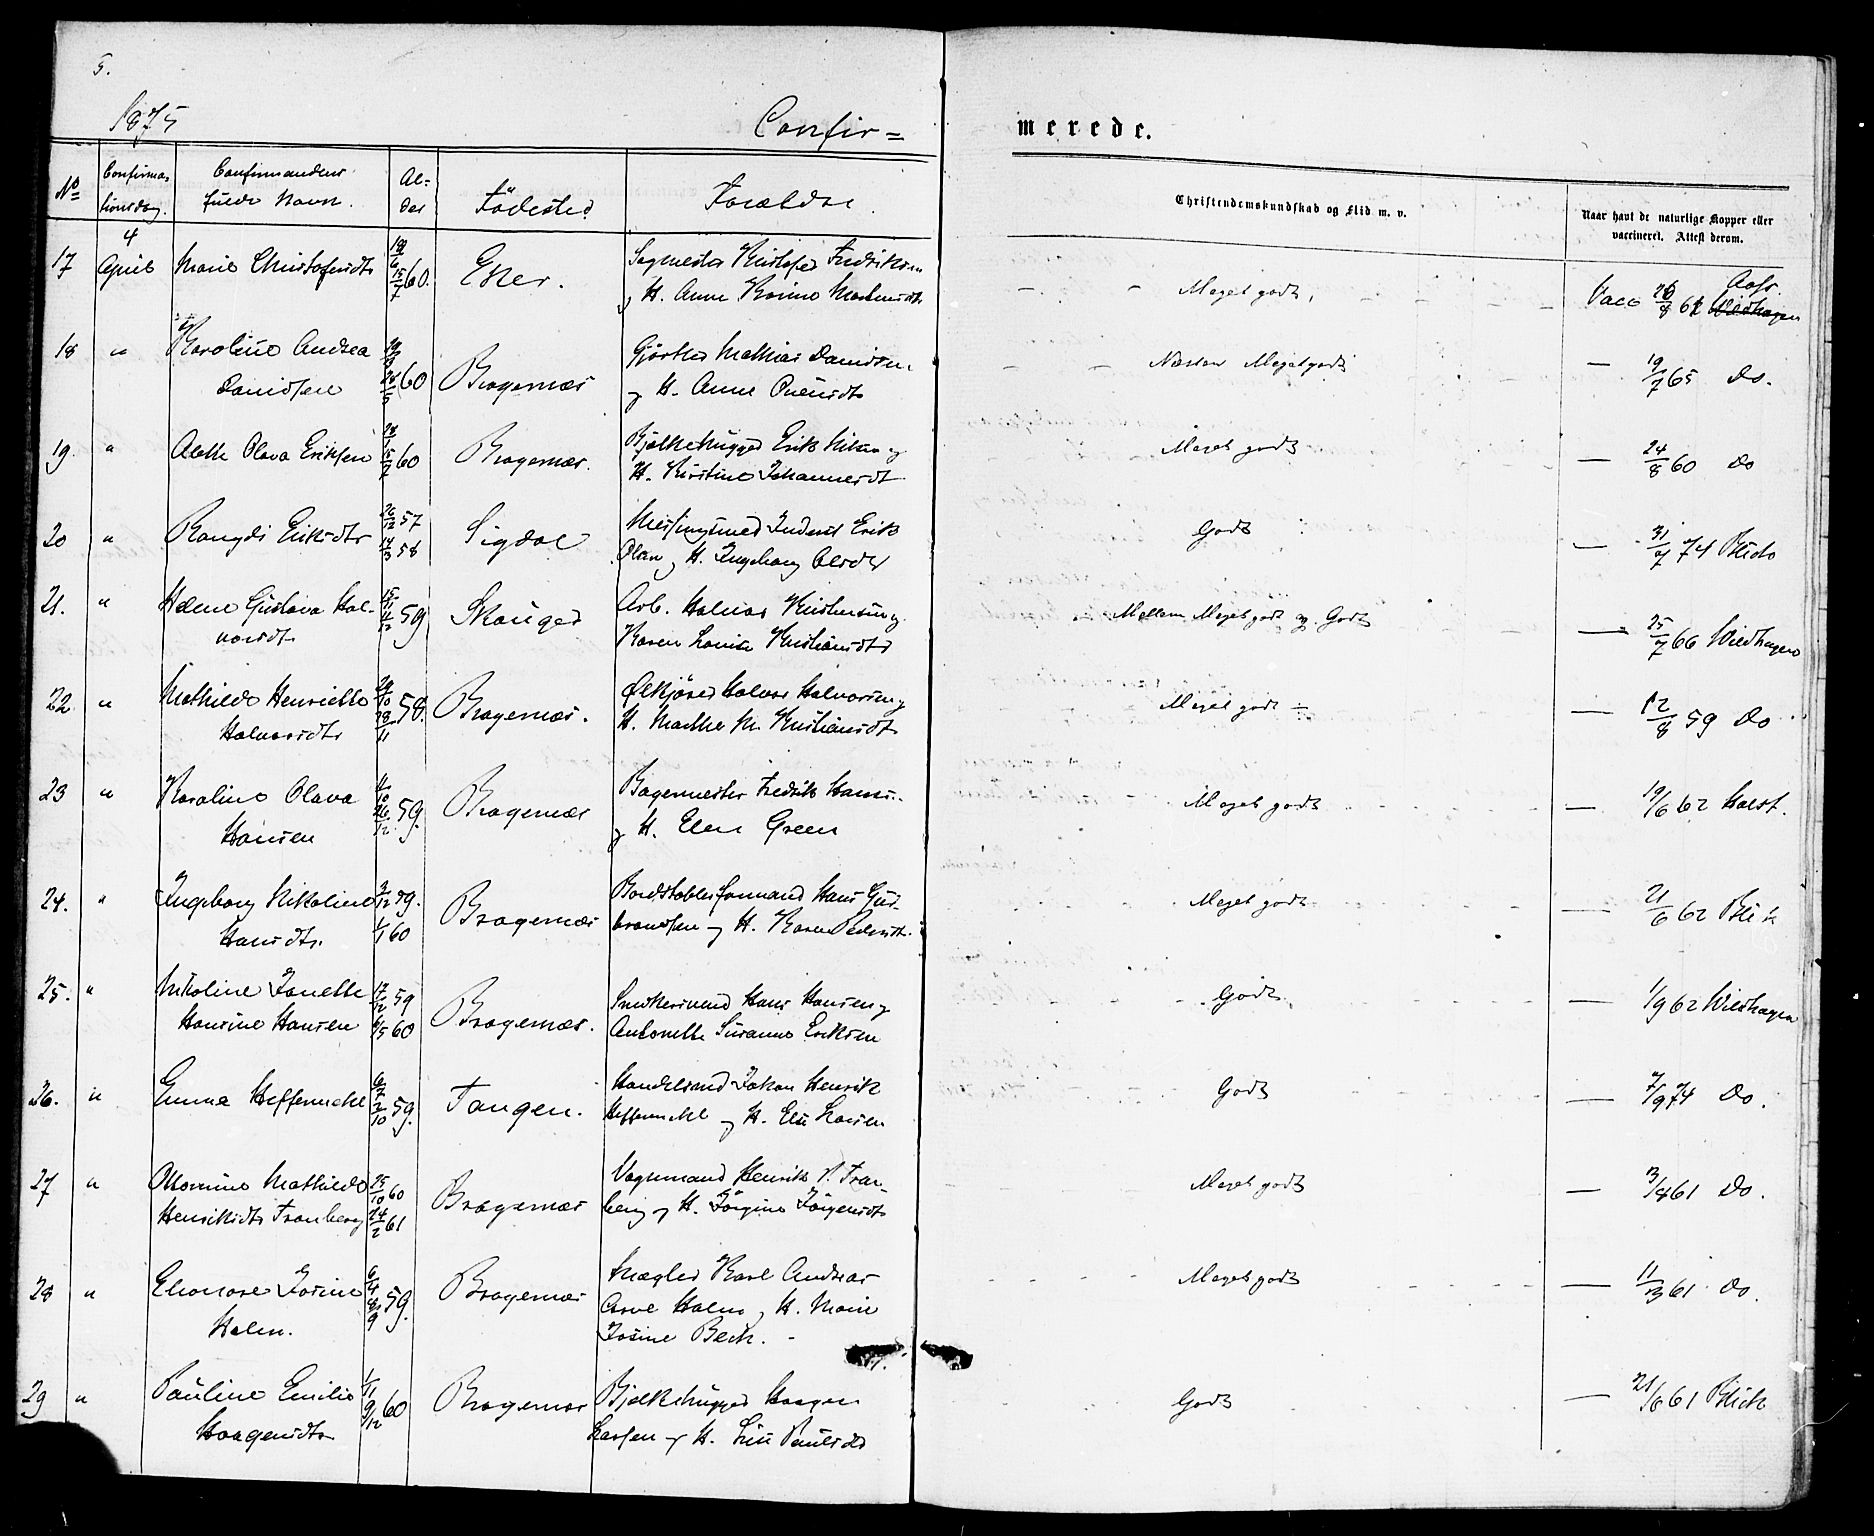 5.
1875
Confir=
merede.
No
Confirma-
tionsdag.
Confirmandens
fulde Navn.
Al-
der
Födested
Forældre.
Christendomskundskab og Flid m. v.
Naar havt de naturlige Kopper eller
vaccineret. Attest derom.
17 4 April Marie Christofersdtr 60. Eker. Sagmester Kristofer Fredriksen
og H. Anne
Meget godt.
Vacc 8 62
18 " Karoline Andrea
Davidsen 60 Bragernæs
Gjörtler Mathias Davidsen
og H. Anne
Næsten Meget godt
— 19/7 65 Do.
19. " Alethe Olava Eriksen 60 Bragernæs.
Bjelkehugger Erik
H. Kirstine Johannesdt
Meget godt
— 24/8 60 Do
20 " Rangdi Eriksdtr 57
58 Sigdal
Erik
Olsen og H. Ingeborg Olsdtr
Godt
— 31/7 74 Blich
21. " Helene Gustava Hal-
vorsdt 59 Skouger
Arb. Halvor
Karen Lovise Kristiansdtr
Mellem Meget godt og Godt
— 25/7 66 Wildhagen
22 " Mathilde Henriette
Halvorsdtr 58. Bragernæs.
Ølkjører Halvor Halvorsen og
H. Marthe M. Kristiansdt
Meget godt ÷
— 12/8 59 Do
23 " Karoline Olava
Hansen 59. Bragernæs
Bagermester Fredrik Hansen
og H. Elen Green
Meget godt
— 19/6 62 Holst.
24. " Ingeborg Nikoline
Hansdtr. 2/12 59.
1/1 60 Bragernæs
Bordstablerformand Hans Gul-
brandsen og H. Karen Pedersdt.
Meget godt
— 21/6 62 Blich
25. " Nikoline Janette
Hansine Hansen 17/12 59
6/5 60 Bragernæs.
Snedkersvend Hans Hansen og
Antonette Susanne Eriksen
Godt
— 1/9 62 Wildhagen
26. " Emma Heffermehl 59. Tangen.
Handelsmand Jakob Henrik
Heffermehl og H. Else Larsen
Godt
— 7/9 74 Do.
27 " Mathilde
Henriksdtr Tranberg 25/10 60
24/2 61 Bragernæs
Vognmand Henrik P. Tran-
berg og H. Jörgine Jörgensdt
Meget godt
— 61 Do.
28 " Eleonore Josine
Holm. 59. Bragernæs
Mægler Karl Andreas
Holm og H. Marie
Josine Bech.
Meget godt
— 11/3 61 Do.
29 " Pauline Emilie
Haagensdtr 1/11
9/12 60 Bragernæs
Bjelkehugger Haagen
Larsen og H. Lise Paulsdtr
Godt
— 21/6 61 Blich